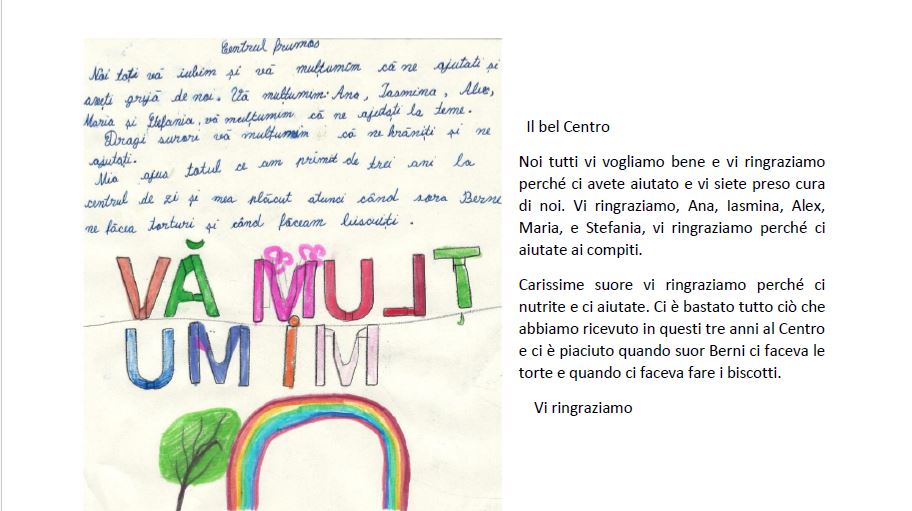 Centrul frumos
Noi toți vă iubim și vă mulțumim că ne ajutati și
aveți grijă de noi. Vă mulțumim: Ana, Iasmina, Alex,
Maria și Ștefania, vă mulțumim că ne ajutați la teme.
Dragi surori vă mulțumim că ne hrăniți și ne
ajutați.
Mia ajus totul ce am primit de trei ani la
centrul de zi și mea plăcut atunci când sora Berne
ne făcea torturi și când făceam biscuiți.
VĂ MULȚ
UMIM
Il bel Centro
Noi tutti vi vogliamo bene e vi ringraziamo
perché ci avete aiutato e vi siete preso cura
di noi. Vi ringraziamo, Ana, Iasmina, Alex,
Maria, e Stefania, vi ringraziamo perché ci
aiutate ai compiti.
Carissime suore vi ringraziamo perché ci
nutrite e ci aiutate. Ci è bastato tutto ciò che
abbiamo ricevuto in questi tre anni al Centro
e ci è piaciuto quando suor Berni ci faceva le
torte e quando ci faceva fare i biscotti.
Vi ringraziamo